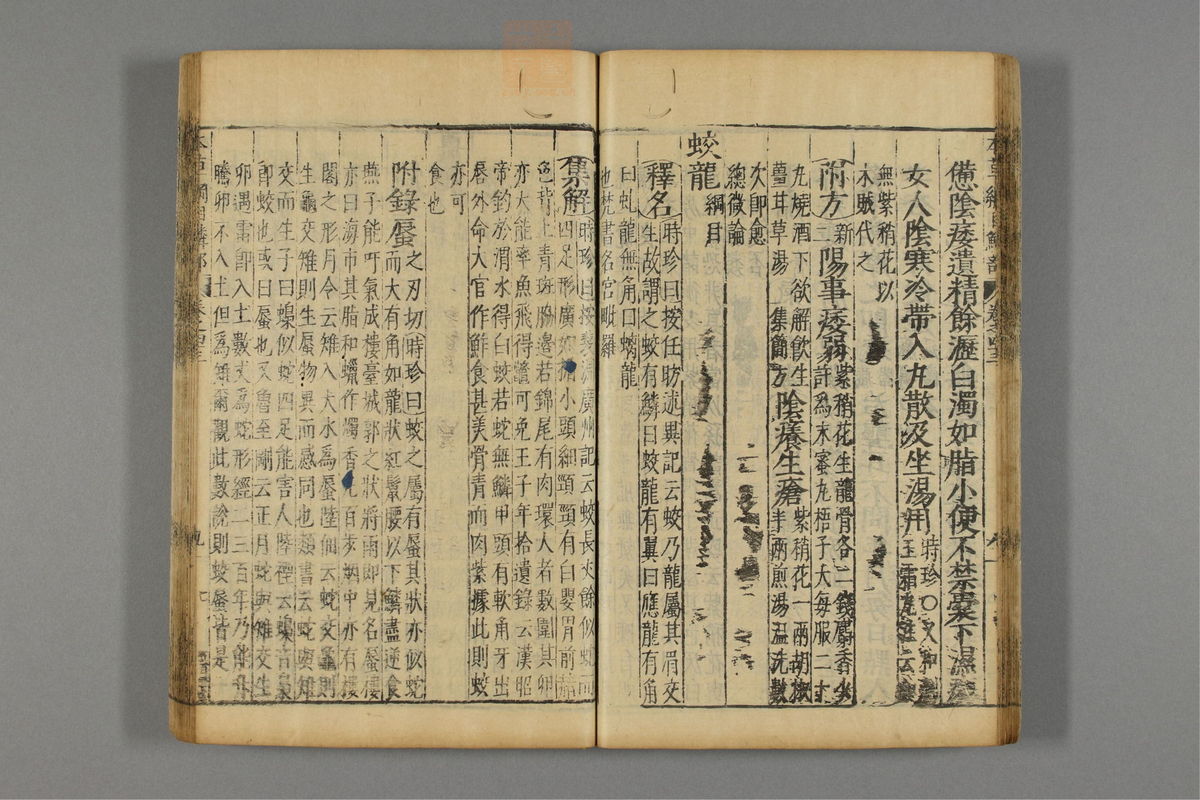 憊陰痿遺精餘瀝白濁如脂小便不禁囊下濕
女人陰寒冷帶入丸散及坐湯用
時珍
又和
玉霜丸注云
無紫稍花以
木賊代之
附方
新二
陽事痿弱
紫稍花生龍骨各二錢麝香少
許爲末蜜丸梧子大每服二十
丸燒酒下欲解飲生
薑甘草湯
集簡方
陰癢生瘡
紫稍花一兩胡椒
半兩煎湯溫洗數
次卽愈
總微論
蛟龍
綱目
釋名
時珍曰按任昉述異記云蛟乃龍屬其眉交
生故謂之蛟有鱗曰蛟龍有翼曰應龍有角
曰虬龍無角曰螭龍
也梵書名宮毗羅
集解
時珍曰按裴淵廣州記云蛟長丈餘似蛇而
四足形廣如楯小頭細頸頸有白嬰胃前赭
色背上青斑脇邊若錦尾有肉環大者數圍其卵
亦大能率魚飛得鼈可免王子年拾遺錄云漢昭
帝釣於渭水得白蛟若蛇無鱗甲頭有軟角牙出
唇外命大官作鮓食甚美骨青而肉紫據此則蛟
亦可
食也
附錄
蜃
之刃切時珍曰蛟之屬有蜃其狀亦似蛇
而大有角如龍狀紅鬣腰以下鱗盡逆食
燕子能吁氣成樓臺城郭之狀將雨卽見名蜃樓
亦曰海市其脂和蠟作燭香凡百步烟中亦有樓
閣之形月令云雉入大水爲蜃陸佃云蛇交龜則
生龜交雉則生蜃物異而感同也類書云蛇與雉
交而生子曰蟂似蛇四足能害人陸禋云蟂音梟
卽蛟也或曰蜃也又魯至剛云正月蛇與雉交生
卵遇雷卽入土數丈爲蛇形經二三百年乃能升
騰卵不入土但爲雉爾觀此數說則蛟蜃皆是一
本草綱目鱗部
卷之四十三
九